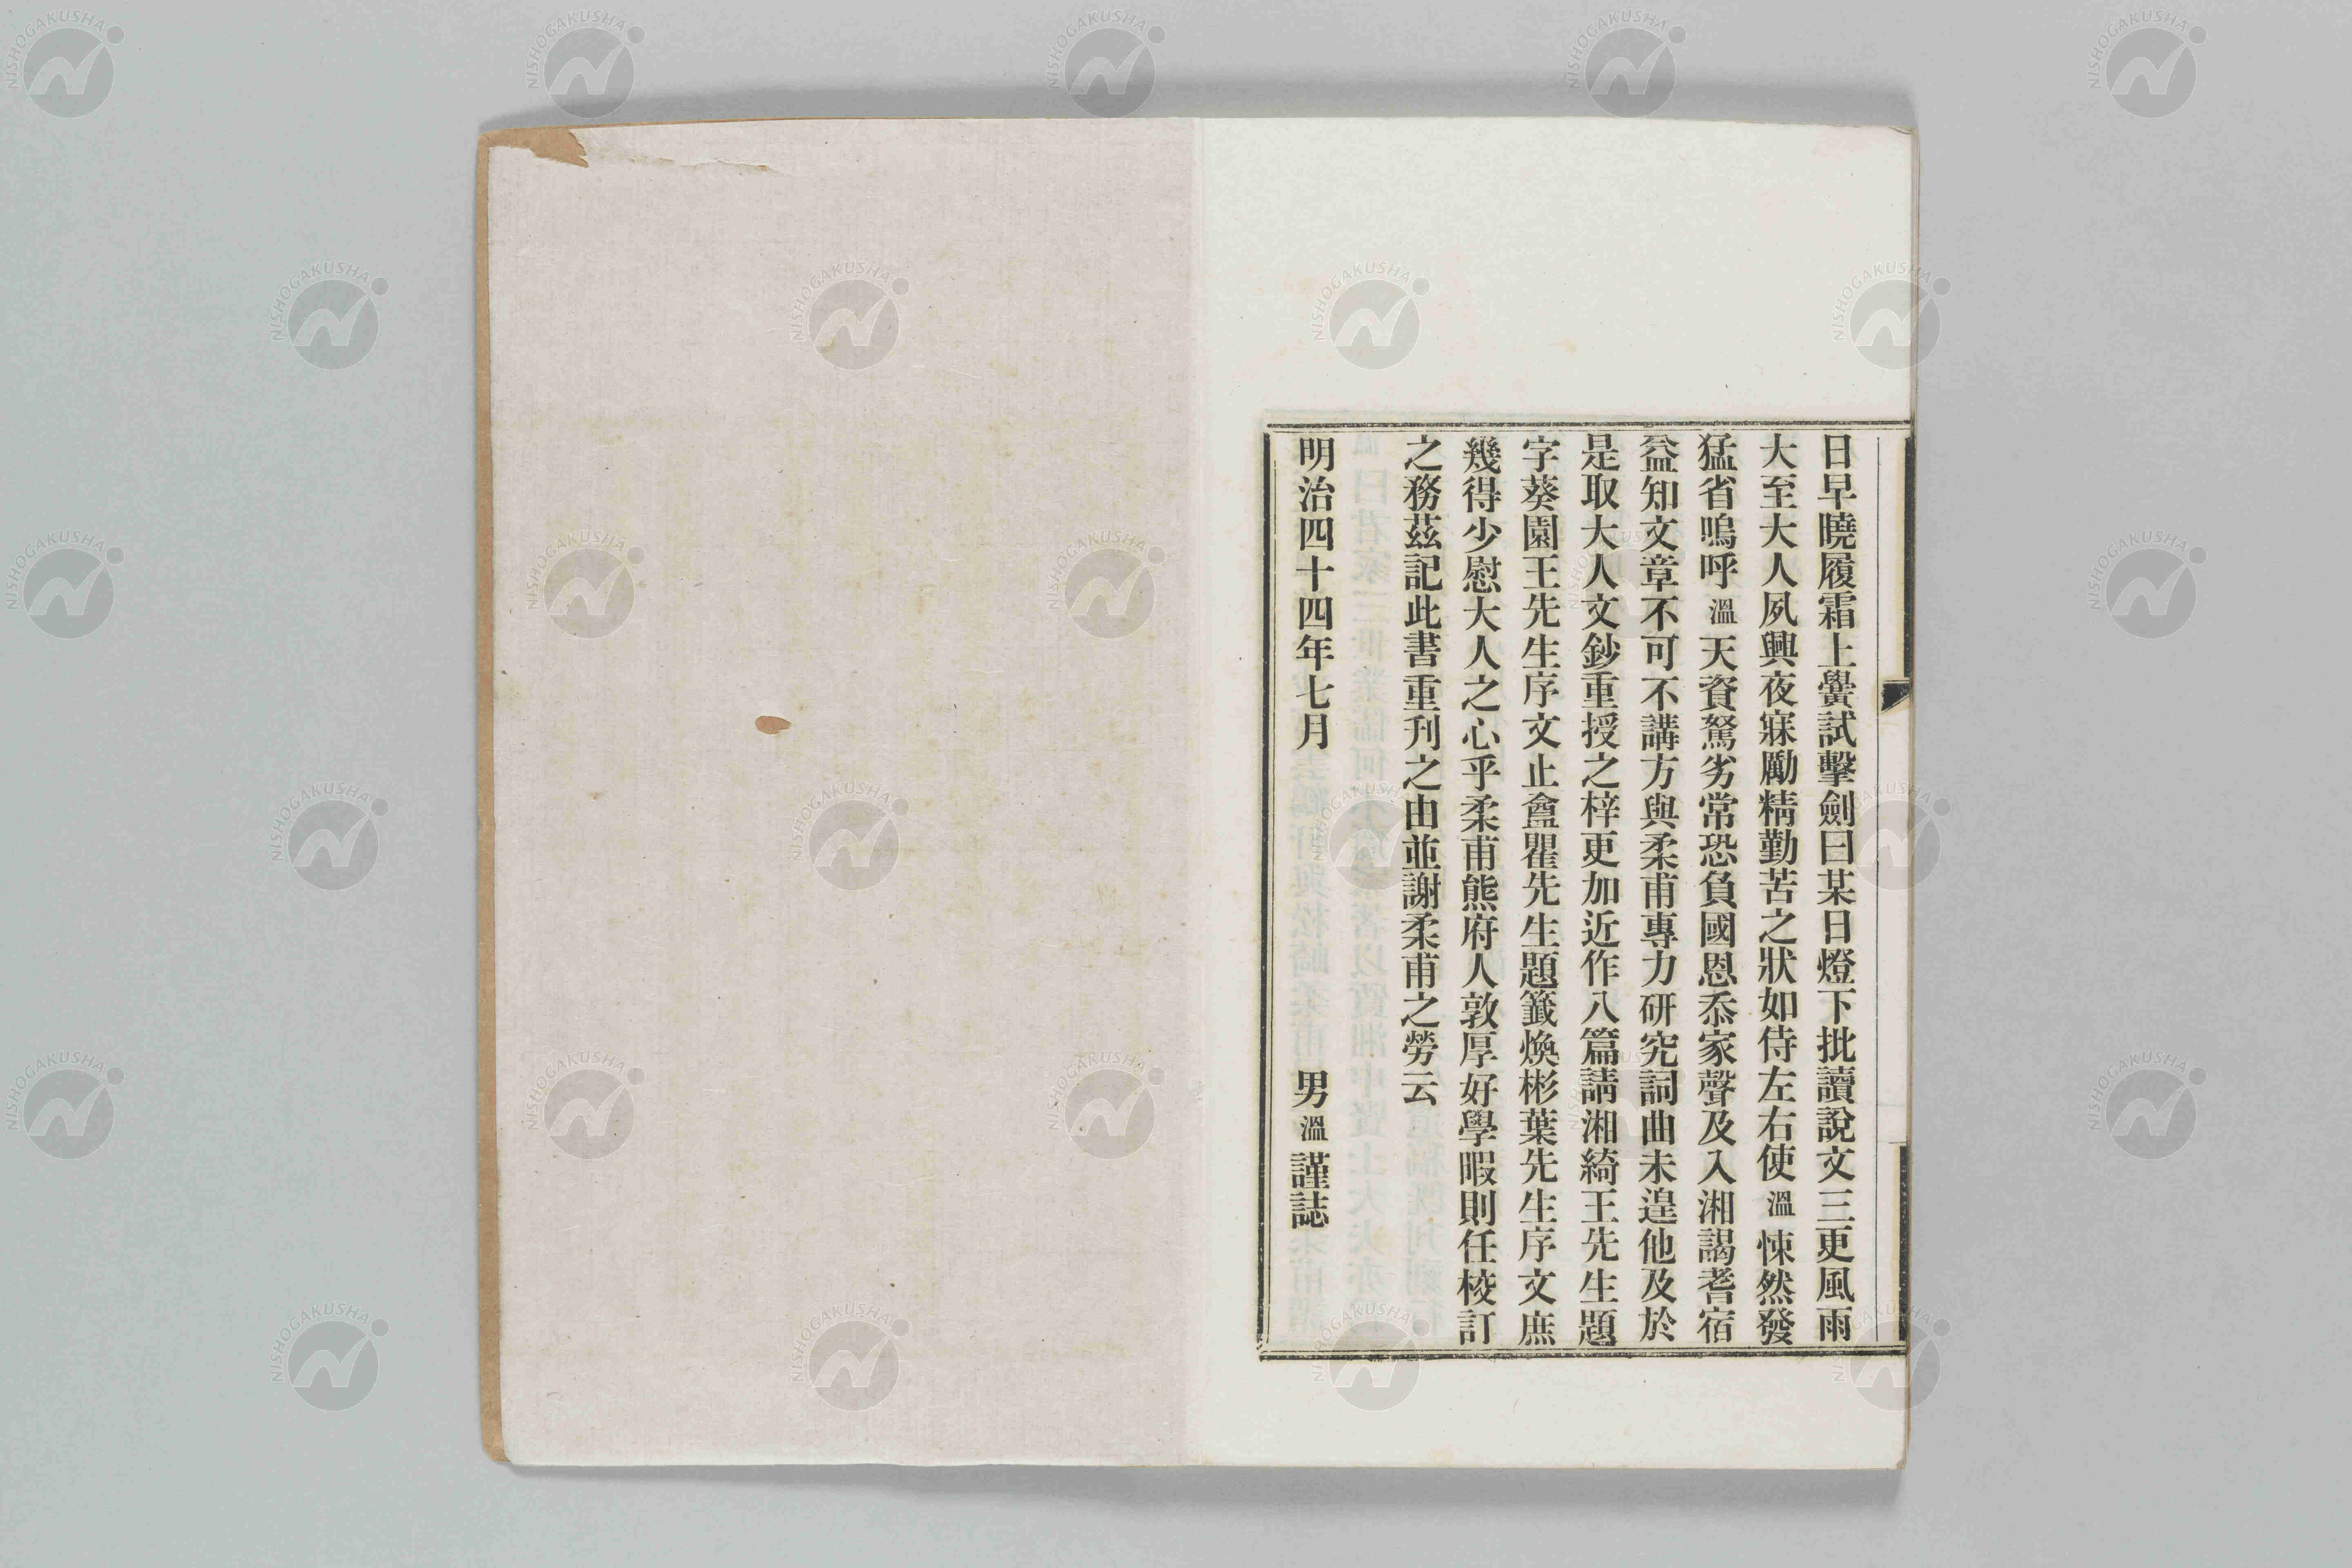 日早曉履霜上黌試擊劍曰某日燈下批讀說文三更風雨
大至大人夙興夜寐勵精勤苦之狀如侍左右使溫悚然發
猛省嗚呼溫天資駑劣常恐負國恩忝家聲及入湘謁耆宿
益知文章不可不講方與柔甫專力研究詞曲未遑他及於
是取大人文鈔重授之梓更加近作八篇請湘綺王先生題
字葵園王先生序文止盦瞿先生題籤煥彬葉先生序文庶
幾得少慰大人之心乎柔甫熊府人敦厚好學暇則任校訂
之務茲記此書重刊之由並謝柔甫之勞云
明治四十四年七月 男溫謹誌
NISHOGAKUSHA